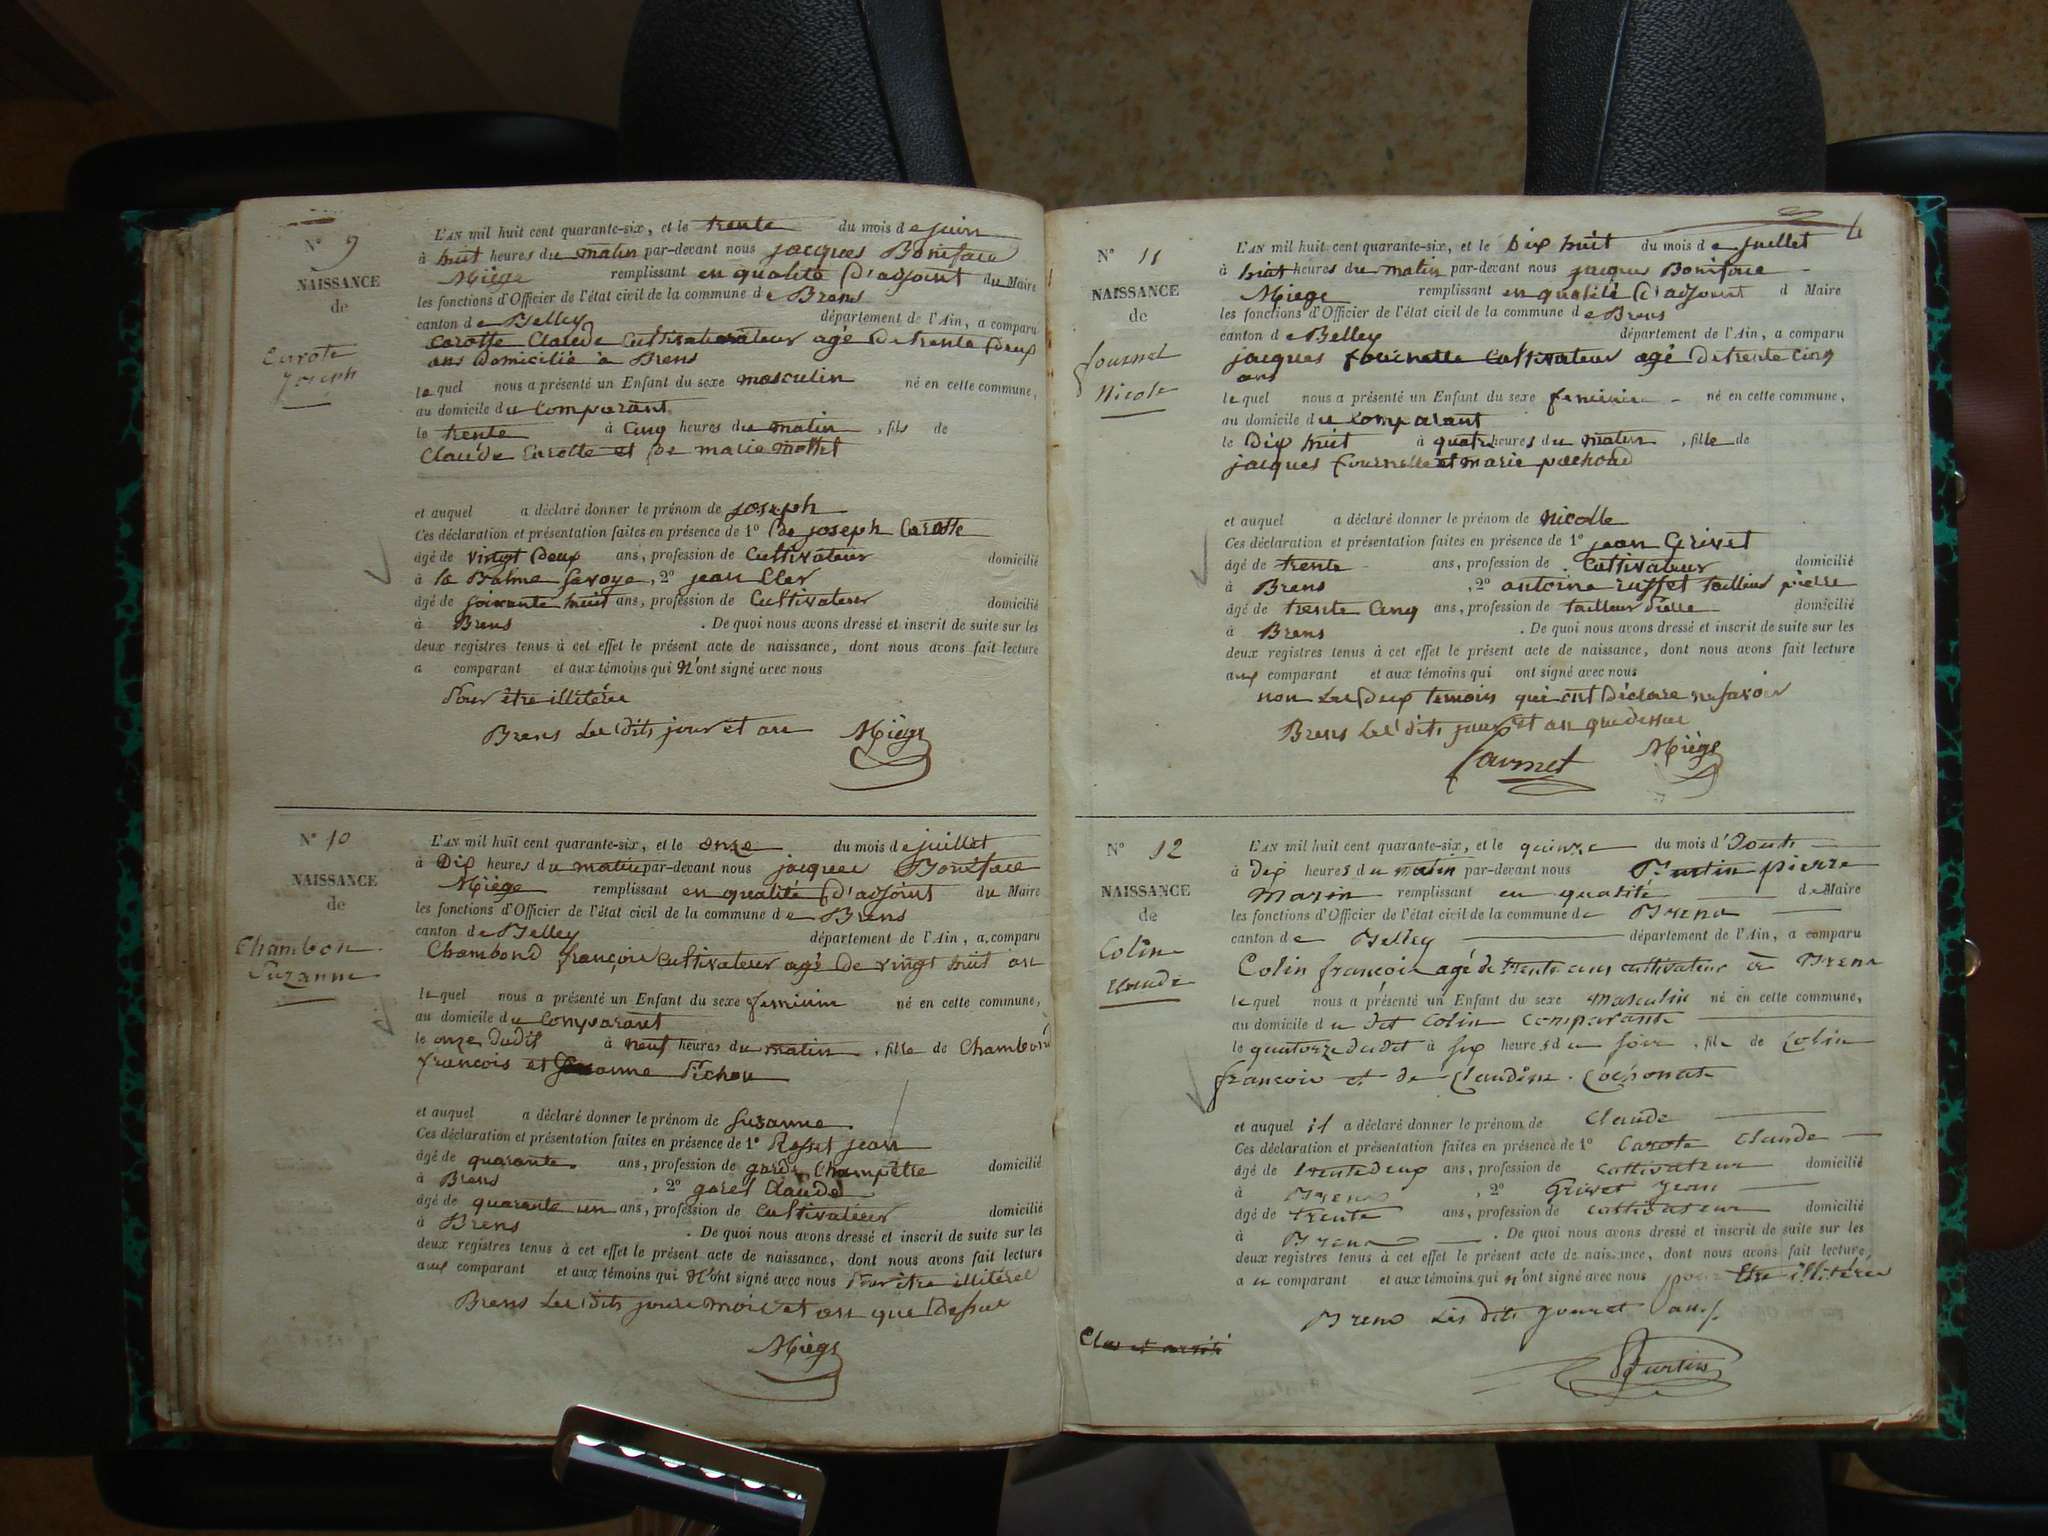 N° 9
NAISSANCE
de
Carote
Joseph
L'AN mil huit cent quarante-six, et le trente du mois de juin
à huit heures du matin par-devant nous jacques Boniface
Miège remplissant en qualité d'adjoint du Maire
les fonctions d'Officier de l'état civil de la commune de Brens
canton de Belley département de l'Ain, a comparu
Carotte Claude Cultivateur agé de trente deux
ans domicilié à Brens
lequel nous a présenté un Enfant du sexe masculin né en cette commune,
au domicile du Comparant
le trente à Cinq heures du matin, fils de
Claude Carotte et de marie mottet
et auquel a déclaré donner le prénom de joseph
Ces déclaration et présentation faites en présence de 1° de joseph Carotte
âgé de vingt deux ans, profession de Cultivateur domicilié
à la Balme Savoye, 2° jean Cler
âgé de soixante huit ans, profession de Cultivateur domicilié
à Brens. De quoi nous avons dressé et inscrit de suite sur les
deux registres tenus à cet effet le présent acte de naissance, dont nous avons fait lecture
a comparant et aux témoins qui n'ont signé avec nous
Pour être illitérée
Brens Les dits jour et an Miège
N° 10
NAISSANCE
de
Chambon
Suzanne
L'AN mil huit cent quarante-six, et le onze du mois de juillet
à Dix heures du matin par-devant nous jacques Boniface
Miège remplissant en qualité d'adjoint du Maire
les fonctions d'Officier de l'état civil de la commune de Brens
canton de Belley département de l'Ain, a comparu
Chambond françois Cultivateur agé de vingt huit an
lequel nous a présenté un Enfant du sexe feminin né en cette commune,
au domicile du Comparant
le onze dudit à neuf heures du matin, fille de Chambond
francois et Suzanne Pichon
et auquel a déclaré donner le prénom de Suzanne
Ces déclaration et présentation faites en présence de 1° Rosset jean
âgé de quarante ans, profession de garde Champêtre domicilié
à Brens, 2° goret Claude
âgé de quarante un ans, profession de Cultivateur domicilié
à Brens. De quoi nous avons dressé et inscrit de suite sur les
deux registres tenus à cet effet le présent acte de naissance, dont nous avons fait lecture
aux comparant et aux témoins qui n'ont signé avec nous Pour être illiteré
Brens Les dits jours mois et an que Dessus
Miège
4
N° 11
NAISSANCE
de
fournel
Nicole
L'AN mil huit cent quarante-six, et le Dix huit du mois de juillet
à huit heures du matin par-devant nous jacques Boniface
Miège remplissant en qualité d'adjoint d Maire
les fonctions d'Officier de l'état civil de la commune de Brens
canton de Belley département de l'Ain, a comparu
jacques fournelle Cultivateur agé de trente cinq
ans
lequel nous a présenté un Enfant du sexe feminin né en cette commune,
au domicile du Comparant
le Dix huit à quatre heures du matin, fille de
jacques fournelle et marie pochoud
et auquel a déclaré donner le prénom de Nicolle
Ces déclaration et présentation faites en présence de 1° jean Grivet
âgé de trente ans, profession de Cultivateur domicilié
à Brens, 2° antoine ruffet tailleur pierre
âgé de trente Cinq ans, profession de tailleur domicilié
à Brens. De quoi nous avons dressé et inscrit de suite sur les
deux registres tenus à cet effet le présent acte de naissance, dont nous avons fait lecture
aux comparant et aux témoins qui ont signé avec nous
non Les Deux temoins qui ont Déclaré ne savoir
Brens Les dits jour et an que dessus
Miège
N° 12
NAISSANCE
de
Colin
Claude
L'AN mil huit cent quarante-six, et le quinze du mois d'Aout
à dix heures du matin par-devant nous Burtin pierre
Marin remplissant en qualité de Maire
les fonctions d'Officier de l'état civil de la commune de Brens
canton de Belley département de l'Ain, a comparu
Colin françois agé de trente ans cultivateur à Brens
lequel nous a présenté un Enfant du sexe masculin né en cette commune,
au domicile du dit Colin Comparant
le quatorze dudit à six heures du soir, fils de Colin
françois et de Claudine
et auquel il a déclaré donner le prénom de Claude
Ces déclaration et présentation faites en présence de 1° Carote Claude
âgé de trente deux ans, profession de cultivateur domicilié
à Brens, 2° Grivet Jean
âgé de trente ans, profession de cultivateur domicilié
à Brens. De quoi nous avons dressé et inscrit de suite sur les
deux registres tenus à cet effet le présent acte de naissance, dont nous avons fait lecture,
au comparant et aux témoins qui n'ont signé avec nous pour être illitérés
Brens Les dits jour et an
Clos et arrêté
Burtin